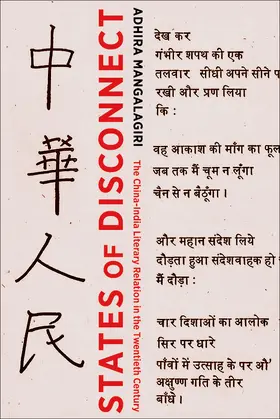 中
華
人
民
STATES OF DISCONNECT
ADHIRA MANGALAGIRI
The China-India Literary Relation in the Twentieth Century
देख कर
गंभीर शपथ की एक
तलवार सीधी अपने सीने प
रखी और प्रण लिया
कि :
वह आकाश की माँग का फूल
जब तक मैं चूम न लूँगा
चैन से न बैठूँगा ।
और महान संदेश लिये
दौड़ता हुआ संदेशवाहक हो
मैं दौड़ा :
चार दिशाओं का आलोक
सिर पर धारे
पाँवों में उत्साह के पर औ'
अक्षुण्ण गति के तीर
बाँधे ।